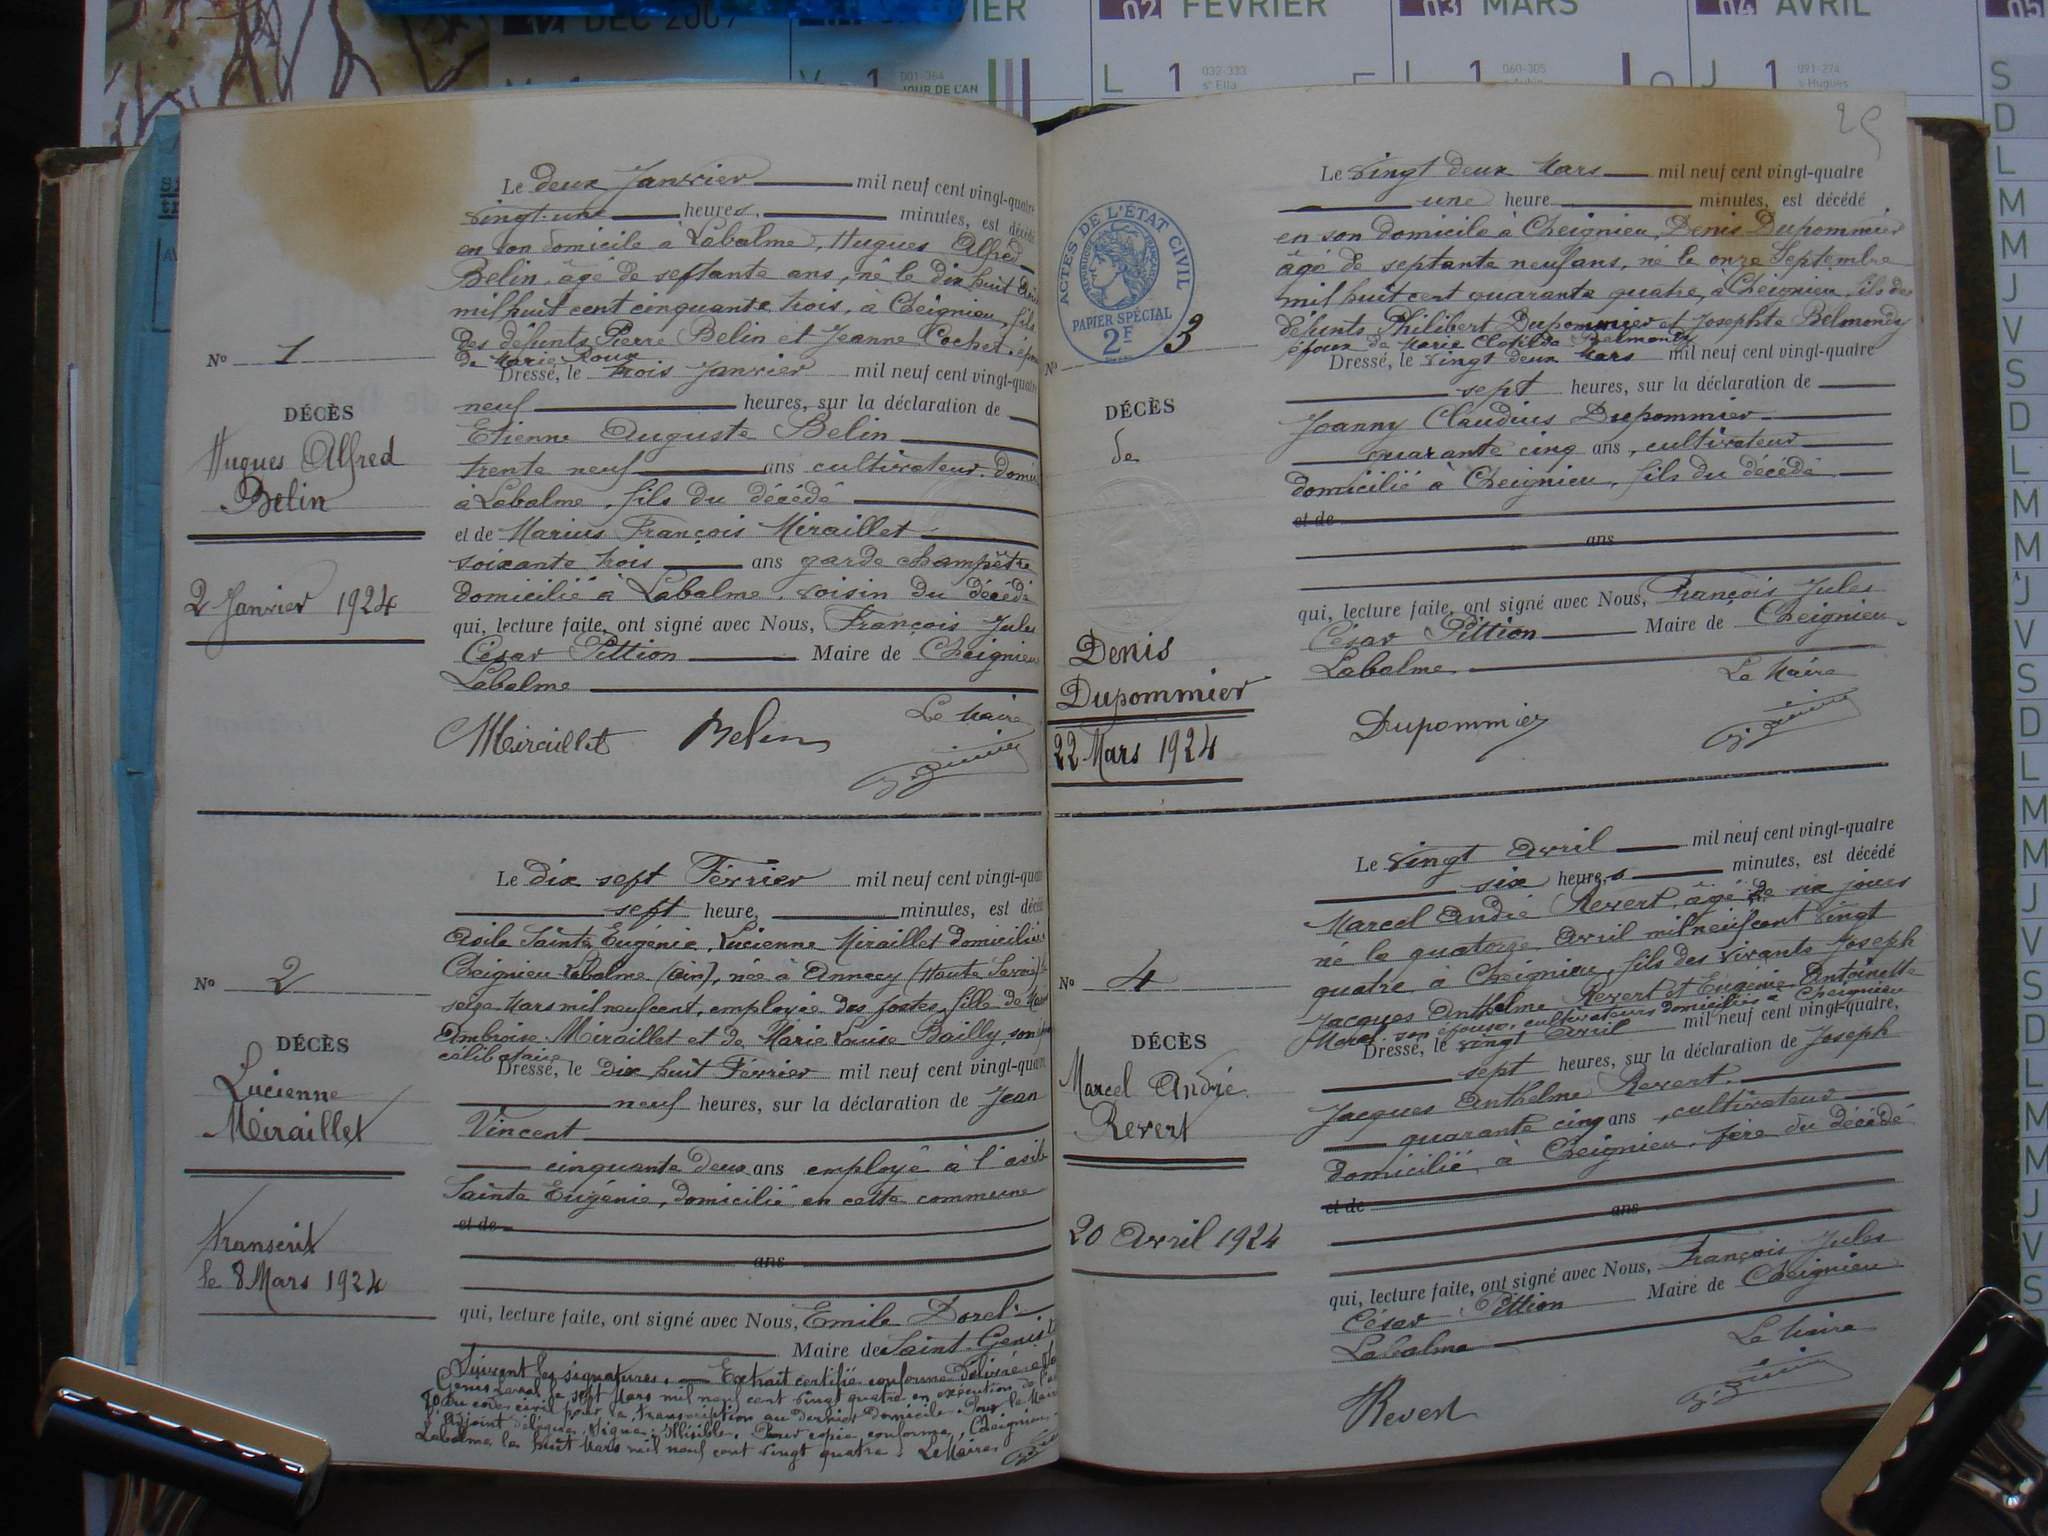 DEC 2009
02 FÉVRIER
03 MARS
04 AVRIL
05
1
001-364
JOUR DE L'AN
L 1
032-333
se Ella
L 1
060-305
J 1
091-274
s Hugues
25
Le deux Janvier mil neuf cent vingt-quatre
vingt-une heures, minutes, est décédé
en son domicile à Labalme, Hugues Alfred
Belin, âgé de septante ans, né le dix huit
mil huit cent cinquante trois, à Cheignieu, fils
des défunts Pierre Belin et Jeanne Cochet, époux
de Marie Roux
No 1
Dressé, le trois Janvier mil neuf cent vingt-quatre
neuf heures, sur la déclaration de
DÉCÈS
Etienne Auguste Belin
Hugues Alfred
Belin
trente neuf ans cultivateur domicilié
à Labalme, fils du décédé
et de Marius François Miraillet
soixante trois ans garde champêtre
2 Janvier 1924
domicilié à Labalme, voisin du décédé
qui, lecture faite, ont signé avec Nous, François Jules
César Pittion Maire de Cheignieu
Labalme
Le Maire
Miraillet Belin
Le dix sept Février mil neuf cent vingt-quatre
sept heure, minutes, est décédée
Asile Sainte Eugénie, Lucienne Miraillet domiciliée
Cheignieu-Labalme (Ain), née à Annecy (Haute Savoie) le
No 2
seize Mars mil neuf cent, employée des postes, fille de
Ambroise Miraillet et de Marie Louise Bailly, son épouse
célibataire
DÉCÈS
Dressé, le dix huit Février mil neuf cent vingt-quatre
Lucienne
Miraillet
neuf heures, sur la déclaration de Jean
Vincent
cinquante deux ans employé à l'asile
Sainte Eugénie, domicilié en cette commune
et de
Transcrit
le 8 Mars 1924
ans
qui, lecture faite, ont signé avec Nous, Emile Dorel
Maire de Saint-Genis L
Suivent les signatures. — Extrait certifié conforme Délivré à St
Genis Laval le sept Mars mil neuf cent vingt quatre en exécution de l'art
80 du code civil pour la transcription au dernier domicile. Pour le Maire
l'Adjoint délégué. Signé: Illisible. Pour copie conforme, Cheignieu
Labalme le huit Mars mil neuf cent vingt quatre. Le Maire
Le vingt deux Mars mil neuf cent vingt-quatre
une heure minutes, est décédé
en son domicile à Cheignieu, Denis Dupommier
âgé de septante neuf ans, né le onze Septembre
mil huit cent quarante quatre, à Cheignieu, fils des
défunts Philibert Dupommier et Josephte Belmondy
époux de Marie Clotilde Belmondy
ACTES DE L'ÉTAT CIVIL
RÉPUBLIQUE FRANÇAISE
PAPIER SPÉCIAL
2F
No 3
Dressé, le vingt deux Mars mil neuf cent vingt-quatre
sept heures, sur la déclaration de
DÉCÈS
de
Joanny Claudius Dupommier
quarante cinq ans, cultivateur
domicilié à Cheignieu, fils du décédé
et de
ans
qui, lecture faite, ont signé avec Nous, François Jules
César Pittion Maire de Cheignieu-
Labalme
Denis
Dupommier
Le Maire
22 Mars 1924
Dupommier
Le vingt Avril mil neuf cent vingt-quatre
six heures minutes, est décédé
Marcel André Revert, âgé de six jours
né le quatorze Avril mil neuf cent vingt
quatre à Cheignieu, fils des vivants Joseph
Jacques Anthelme Revert et Eugénie Antoinette
Morel son épouse, cultivateurs domiciliés à Cheignieu
No 4
Dressé, le vingt Avril mil neuf cent vingt-quatre,
sept heures, sur la déclaration de Joseph
DÉCÈS
Marcel André
Revert
Jacques Anthelme Revert.
quarante cinq ans, cultivateur
domicilié à Cheignieu, père du décédé
et de
ans
20 Avril 1924
qui, lecture faite, ont signé avec Nous, François Jules
César Pittion Maire de Cheignieu
Labalme
Le Maire
Revert
S
D
L
M
M
J
V
S
D
L
M
M
J
V
S
D
L
M
M
J
V
S
D
L
M
M
J
V
S